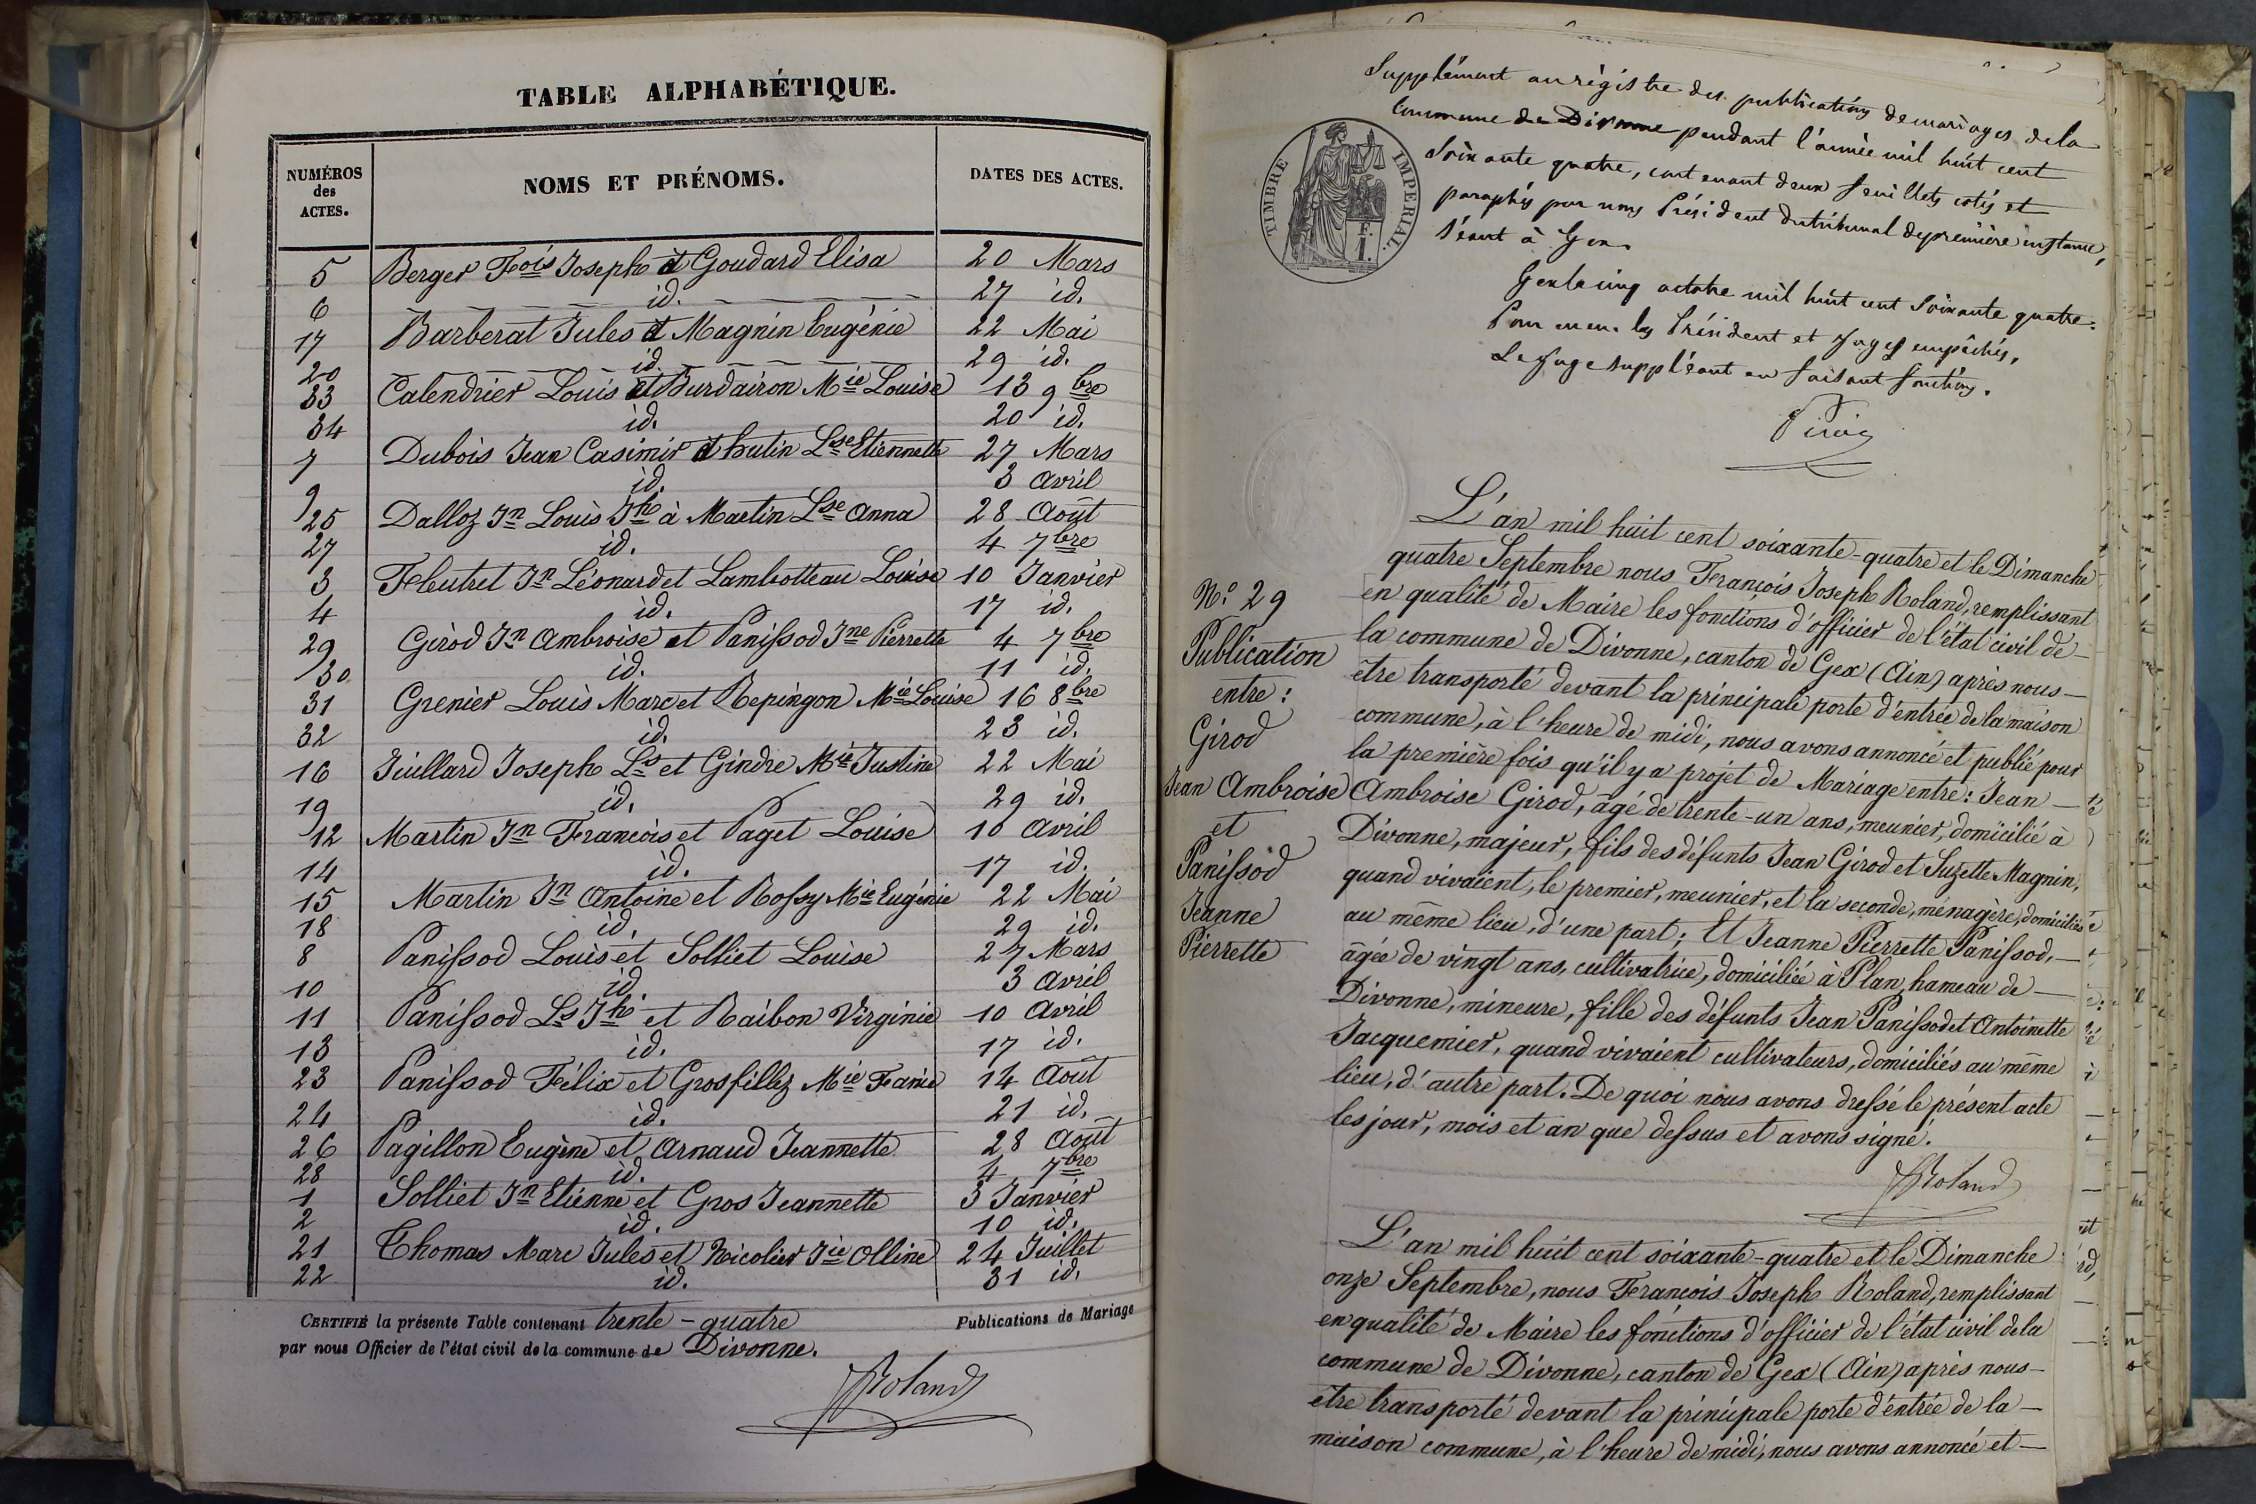 TABLE ALPHABÉTIQUE.
NUMÉROS des ACTES. NOMS ET PRÉNOMS. DATES DES ACTES.
5 Berger Fois Joseph et Goudard Elisa 20 Mars
6 id. 27 id.
17 Barberat Jules et Magnin Eugénie 22 Mai
20 id. 29 id.
33 Calendrier Louis et Burdairon Mie Louise 13 9bre
34 id. 20 id.
7 Dubois Jean Casimir et hutin Lse Etiennette 27 Mars
9 id. 3 avril
25 Dalloz Jn Louis Jh à Martin Lse Anna 28 Août
27 id. 4 7bre
3 Fleutret Jn Léonard et Lambotteau Louise 10 Janvier
4 id. 17 id.
29 Girod Jn Ambroise et Panissod Jne Pierrette 4 7bre
30 id. 11 id.
31 Grenier Louis Marc et Repingon Mie Louise 16 8bre
32 id. 23 id.
16 Juillard Joseph Ls et Gindre Mie Justine 22 Mai
19 id. 29 id.
12 Martin Jn François et Paget Louise 10 avril
14 id. 17 id.
15 Martin Jn Antoine et Rossy Mie Eugénie 22 Mai
18 id. 29 id.
8 Panissod Louis et Solliet Louise 27 Mars
10 id. 3 avril
11 Panissod Ls Jh et Raibon Virginie 10 avril
13 id. 17 id.
23 Panissod Félix et Grosfillez Mie Fanie 14 Août
24 id. 21 id.
26 Pagillon Eugène et Arnaud Jeannette 28 Août
28 id. 4 7bre
1 Solliet Jn Etienne et Gros Jeannette 3 Janvier
2 id. 10 id.
21 Thomas Marc Jules et Nicolier Jie Olline 24 Juillet
22 id. 31 id.
CERTIFIÉ la présente Table contenant trente-quatre Publications de Mariage
par nous Officier de l'état civil de la commune de Divonne.
JRoland
Supplément au régistre des publications de mariages de la
Commune de Divonne pendant l'année mil huit cent
Soixante quatre, contenant deux feuillets cotés et
paraphés par nous Président du tribunal de première instance,
Séant à Gex.
TIMBRE IMPERIAL.
Gex le cinq octobre mil huit cent Soixante quatre.
Pour les Président et Juges empêchés,
Le Juge Suppléant en faisant fonctions.
L'an mil huit cent soixante-quatre et le Dimanche
quatre Septembre nous François Joseph Roland, remplissant
en qualité de Maire les fonctions d'officier de l'état civil de
la commune de Divonne, canton de Gex (Ain) après nous
être transporté devant la principale porte d'entrée de la maison
commune, à l'heure de midi, nous avons annoncé et publié pour
la première fois qu'il y a projet de Mariage entre : Jean
Ambroise Girod, âgé de trente-un ans, meunier, domicilié à
Divonne, majeur, fils des défunts Jean Girod et Suzette Magnin,
quand vivaient, le premier, meunier, et la seconde, ménagère, domiciliés
au même lieu, d'une part ; Et Jeanne Pierrette Panissod,
âgée de vingt ans, cultivatrice, domiciliée à Plan, hameau de
Divonne, mineure, fille des défunts Jean Panissod et Antoinette
Jacquemier, quand vivaient cultivateurs, domiciliés au même
lieu, d'autre part. De quoi nous avons dressé le présent acte
les jour, mois et an que dessus et avons signé.
JRoland
N° 29
Publication
entre :
Girod
Jean Ambroise
et
Panissod
Jeanne
Pierrette
L'an mil huit cent soixante-quatre et le Dimanche
onze Septembre, nous François Joseph Roland, remplissant
en qualité de Maire les fonctions d'officier de l'état civil de la
commune de Divonne, canton de Gex (Ain) après nous
être transporté devant la principale porte d'entrée de la
maison commune, à l'heure de midi, nous avons annoncé et